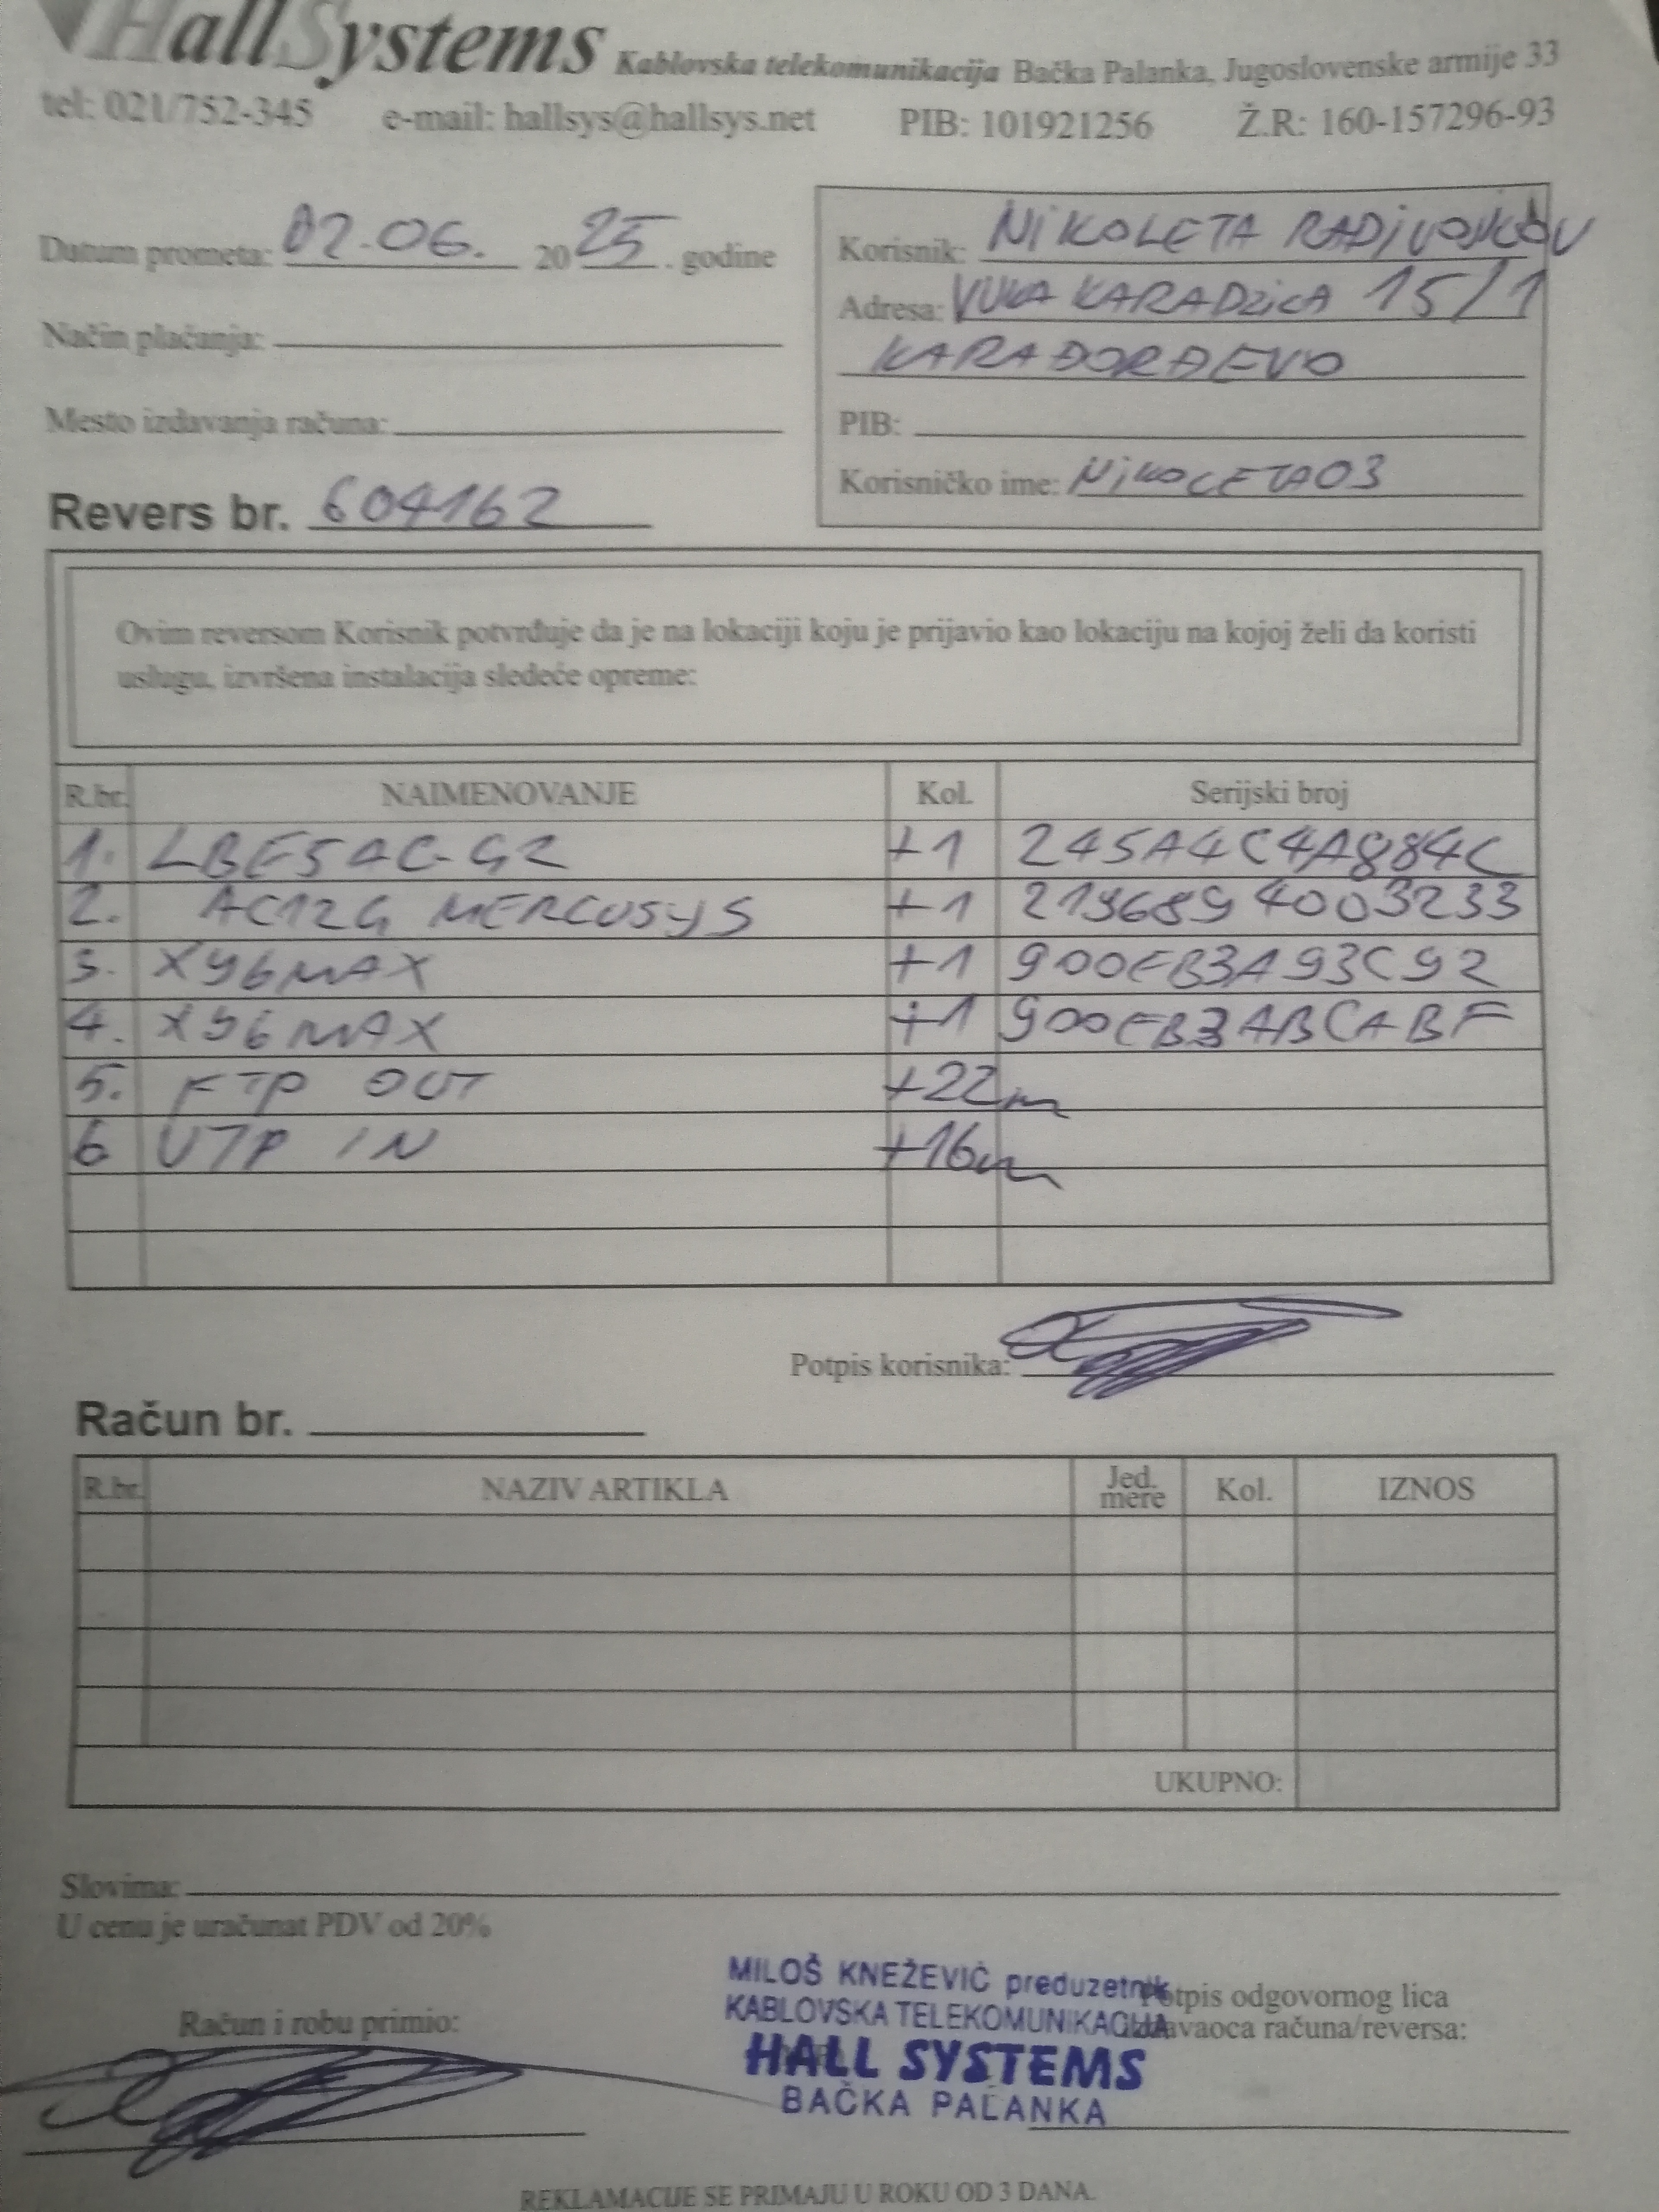 HallSystems Kablovska telekomunikacija Bačka Palanka, Jugoslovenske armije 33
tel: 021/752-345 e-mail: hallsys@hallsys.net PIB: 101921256 Ž.R: 160-157296-93
Datum prometa: 02.06. 2025. godine
Način plaćanja:
Mesto izdavanja računa:
Revers br. 604162
Korisnik: NIKOLETA
Adresa: VUKA KARADZICA 15/1
KARAĐORĐEVO
PIB:
Korisničko ime: NIKOLETA03
Ovim reversom Korisnik potvrđuje da je na lokaciji koju je prijavio kao lokaciju na kojoj želi da koristi
uslugu, izvršena instalacija sledeće opreme:
R.br. NAIMENOVANJE Kol. Serijski broj
1. LBE5AC-G2 +1 245A4C4A884C
2. AC12G MERCUSYS +1 2196894003233
3. X96MAX +1 900EB3A93C92
4. X96MAX +1 900EB3ABCABF
5. FTP OUT +22m
6 UTP IN +16m
Potpis korisnika:
Račun br.
R.br. NAZIV ARTIKLA Jed. mere Kol. IZNOS
UKUPNO:
Slovima:
U cenu je uračunat PDV od 20%
MILOŠ KNEŽEVIĆ preduzetnik
KABLOVSKA TELEKOMUNIKACIJA
HALL SYSTEMS
BAČKA PALANKA
Potpis odgovornog lica
izdavaoca računa/reversa:
Račun i robu primio:
REKLAMACIJE SE PRIMAJU U ROKU OD 3 DANA.